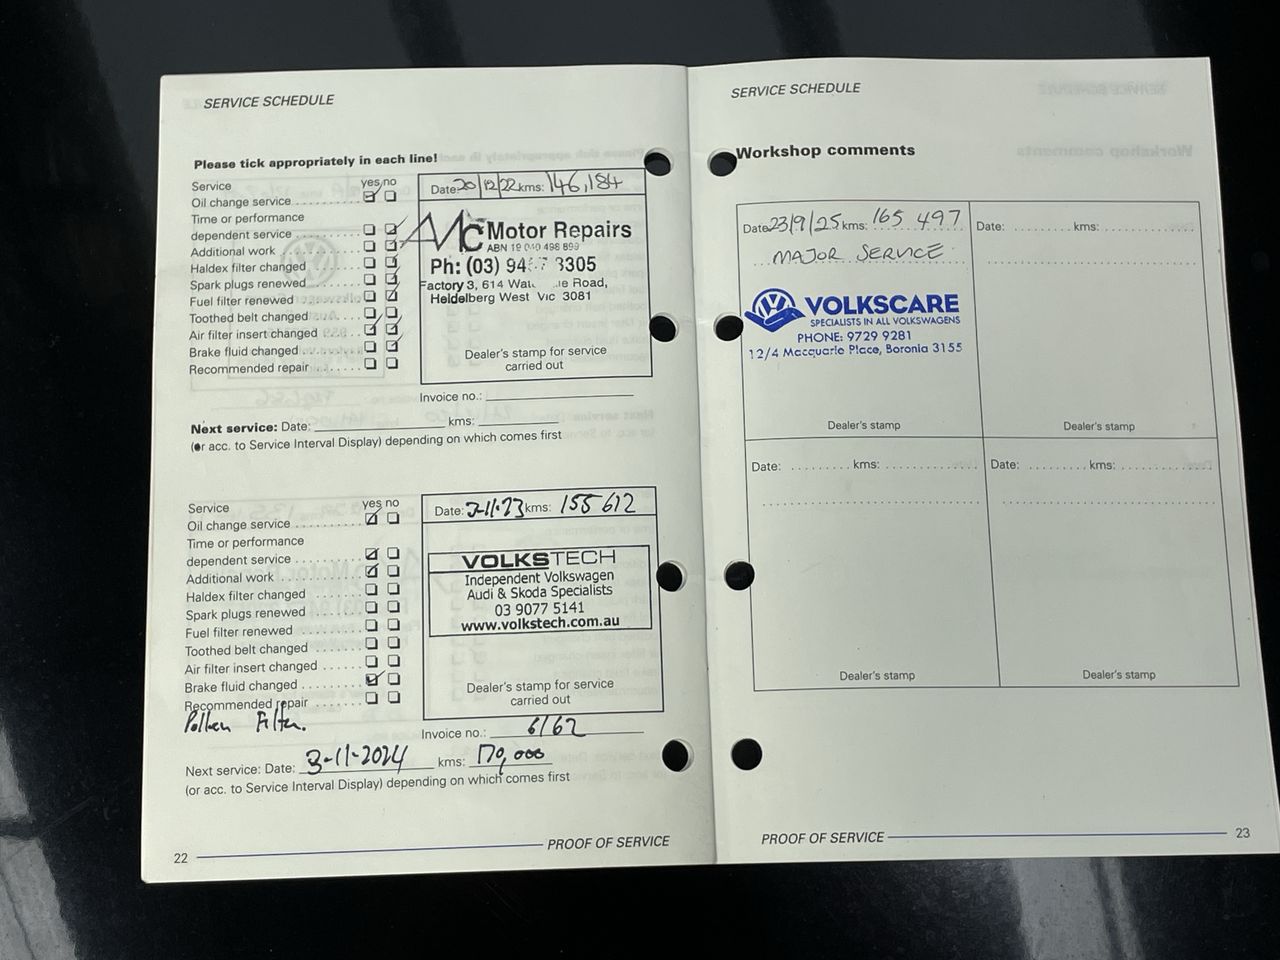 SERVICE SCHEDULE
Please tick appropriately in each line!
Service yes no
Oil change service
Time or performance
dependent service
Additional work
Haldex filter changed
Spark plugs renewed
Fuel filter renewed
Toothed belt changed
Air filter insert changed
Brake fluid changed
Recommended repair
Date: 20/12/22 kms: 146,184
AMC Motor Repairs
ABN 19 040 498 899
Ph: (03) 3305
Factory 3, 614 Road,
Heidelberg West Vic 3081
Dealer's stamp for service
carried out
Invoice no.:
Next service: Date: kms:
(or acc. to Service Interval Display) depending on which comes first
Service yes no
Oil change service
Time or performance
dependent service
Additional work
Haldex filter changed
Spark plugs renewed
Fuel filter renewed
Toothed belt changed
Air filter insert changed
Brake fluid changed
Recommended repair
Pollen Filter.
Date: 3-11-23 kms: 155 612
VOLKSTECH
Independent Volkswagen
Audi & Skoda Specialists
03 9077 5141
www.volkstech.com.au
Dealer's stamp for service
carried out
Invoice no.: 6162
Next service: Date: 3-11-2024 kms: 170,000
(or acc. to Service Interval Display) depending on which comes first
22 PROOF OF SERVICE
SERVICE SCHEDULE
Workshop comments
Date: 23/9/25 kms: 165 497
MAJOR SERVICE
VOLKSCARE
SPECIALISTS IN ALL VOLKSWAGENS
PHONE: 9729 9281
12/4 Macquarie Place, Boronia 3155
Dealer's stamp
Date: kms:
Dealer's stamp
Date: kms:
Dealer's stamp
Date: kms:
Dealer's stamp
PROOF OF SERVICE 23